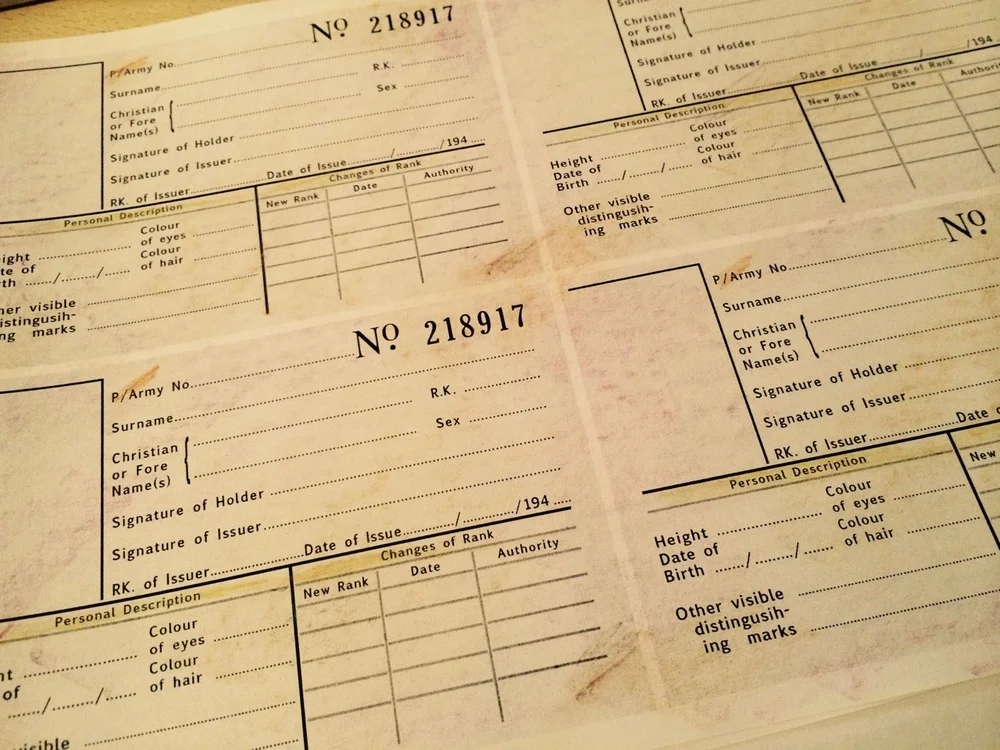 No 218917
P/Army No
Surname
R.K.
Christian
or Fore
Name(s)
Sex
Signature of Holder
Signature of Issuer
RK. of Issuer Date of Issue / /194
Personal Description
Changes of Rank
New Rank Date Authority
ight
Colour
of eyes
te of
rth / /
Colour
of hair
her visible
istingusih-
ng marks
Christian
or Fore
Name(s)
Signature of Holder
Signature of Issuer
RK. of Issuer Date of Issue / /194
Personal Description
Changes of Rank
New Rank Date Authori
Height
Colour
of eyes
Date of
Birth / /
Colour
of hair
Other visible
distingusih-
ing marks
No 218917
P/Army No
Surname
R.K.
Christian
or Fore
Name(s)
Sex
Signature of Holder
Signature of Issuer
RK. of Issuer Date of Issue / /194
Personal Description
Changes of Rank
New Rank Date Authority
ht
Colour
of eyes
of
/ /
Colour
of hair
visible
No
P/Army No
Surname
Christian
or Fore
Name(s)
Signature of Holder
Signature of Issuer
RK. of Issuer Date o
Personal Description
New
Height
Colour
of eyes
Date of
Birth / /
Colour
of hair
Other visible
distingusih-
ing marks